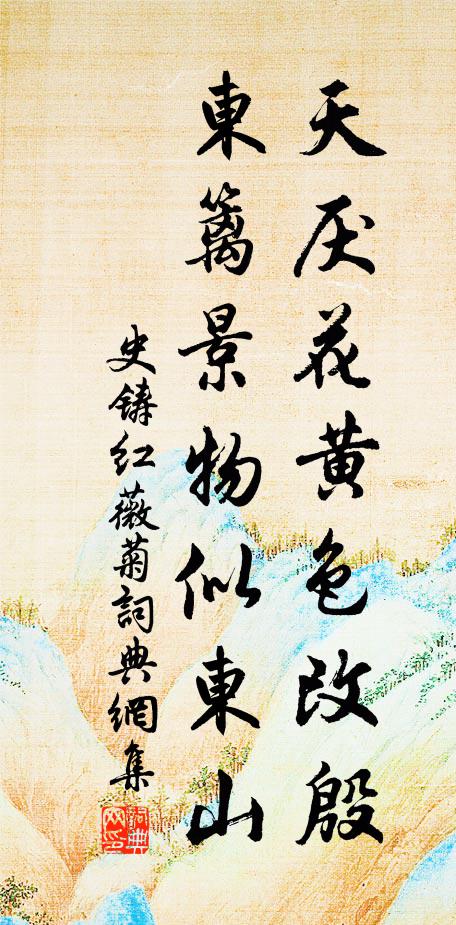 天厌花黄色改殷
東籬景物似東山
史铸红薇菊詞典網集
詞典网印